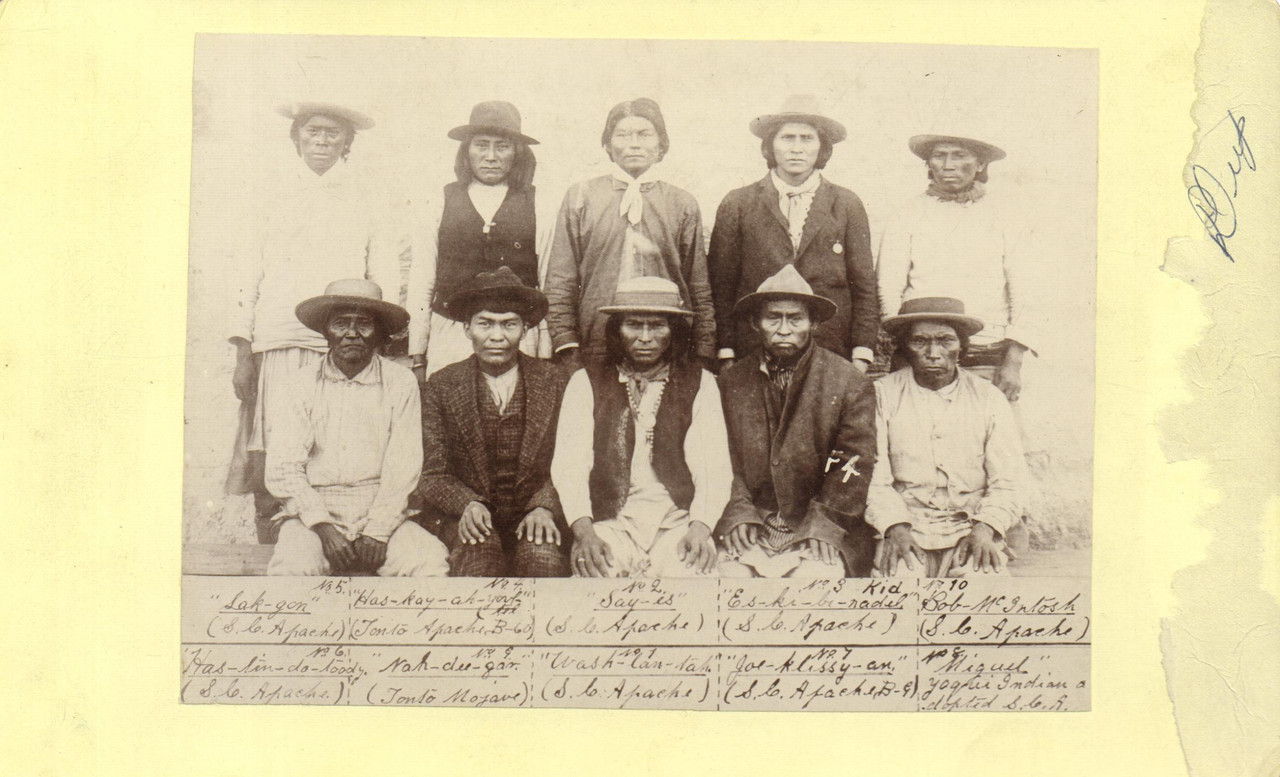 Dup
54
No 5. No 4. No 2. No 3 Kid No 10
"Lak-gon" "Has-kay-ah-" "Say-es" "Es-ki-bi-nadel" Bob-McIntosh
(S. C. Apache) (Tonto Apache, B-60) (S. C. Apache) (S. C. Apache) (S. C. Apache)
No 6. No 9 No 1 No 7 No 8
"Has-tin-do-toody." "Nah-dee-gar." "Wash-lan-tah" "Joe-klissy-an," "Miguel"
(S. C. Apache) (Tonto Mojave) (S. C. Apache) (S. C. Apache, B-9) Yoqui Indian a
dopted S. C. R.